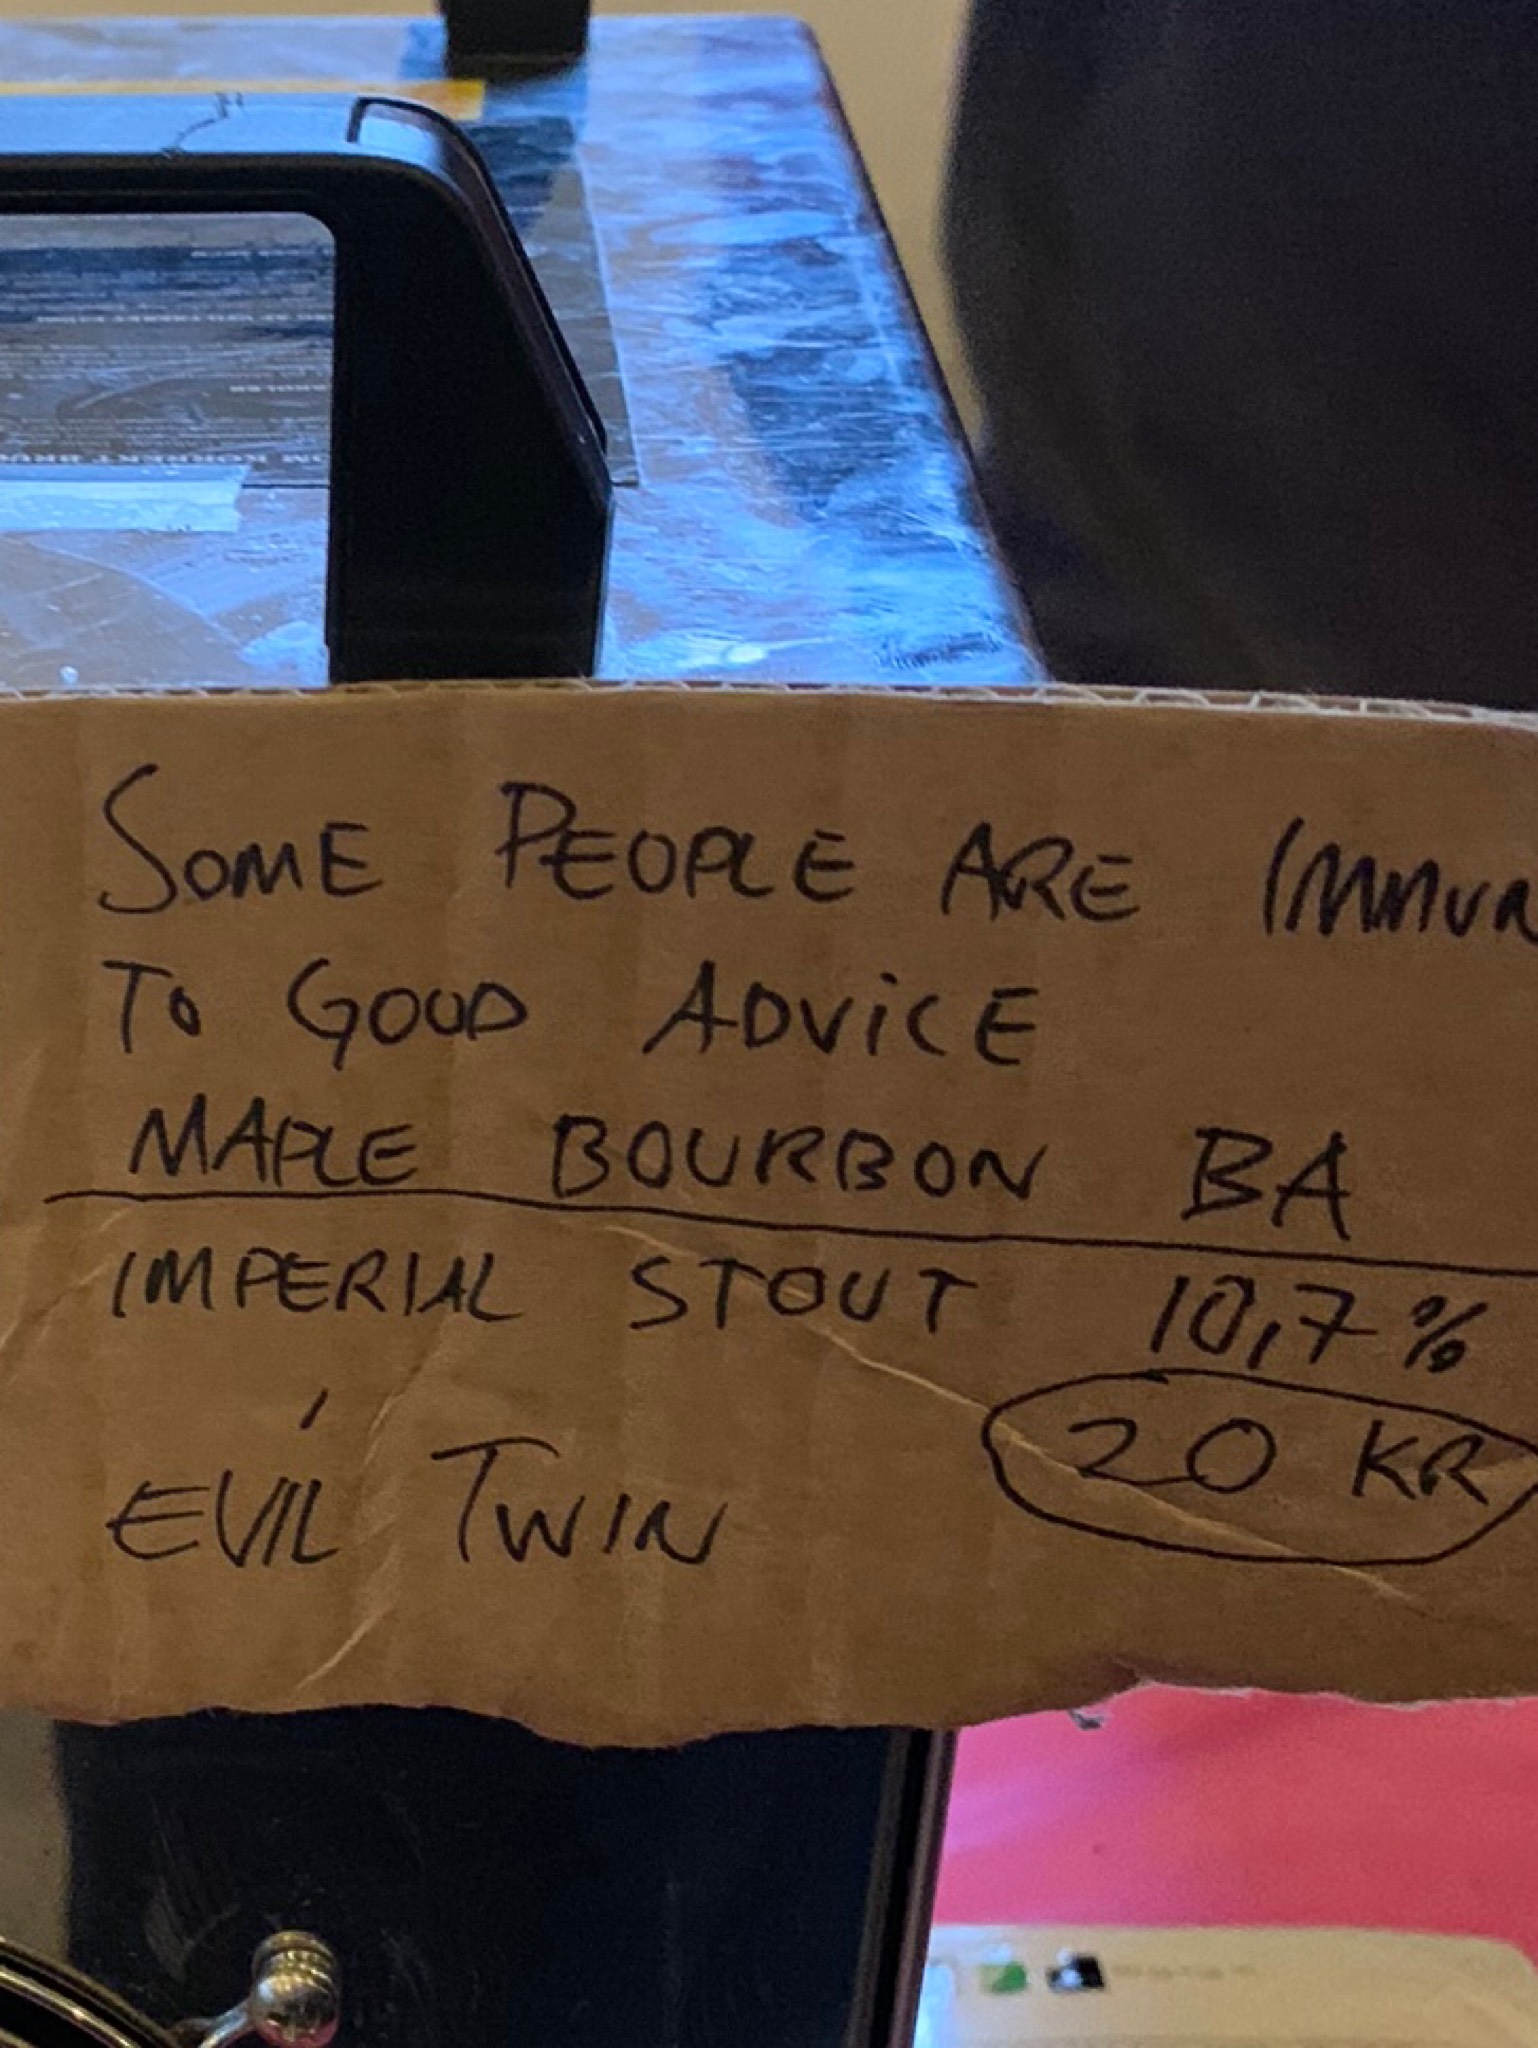 SOME PEOPLE ARE IMMUN
TO GOOD ADVICE
MAPLE BOURBON BA
IMPERIAL STOUT 10,7%
20 KR
EVIL TWIN